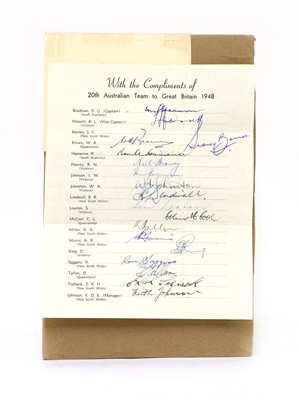 With the Compliments of
20th Australian Team to Great Britain 1948
Bradman, D. G. (Captain)
(South Australia)
Hassett, A. L. (Vice Captain)
(Victoria)
Barnes, S. G.
(New South Wales)
Brown, W. A.
(Queensland)
Hamence, R.
(South Australia)
Harvey, R. N.
(Victoria)
Johnson, I. W.
(Victoria)
Johnston, W. A.
(Victoria)
Lindwall, R. R.
(New South Wales)
Loxton, S.
(Victoria)
McCool, C. L.
(Queensland)
Miller, K. R.
(New South Wales)
Morris, A. R.
(New South Wales)
Ring, D.
(Victoria)
Saggers, R.
(New South Wales)
Tallon, D.
(Queensland)
Toshack, E. R. H.
(New South Wales)
Johnson, K. O. E. (Manager)
(New South Wales)
Sidney Barnes
Neil Harvey
Colin McCool
Ron Saggers
Keith Johnson